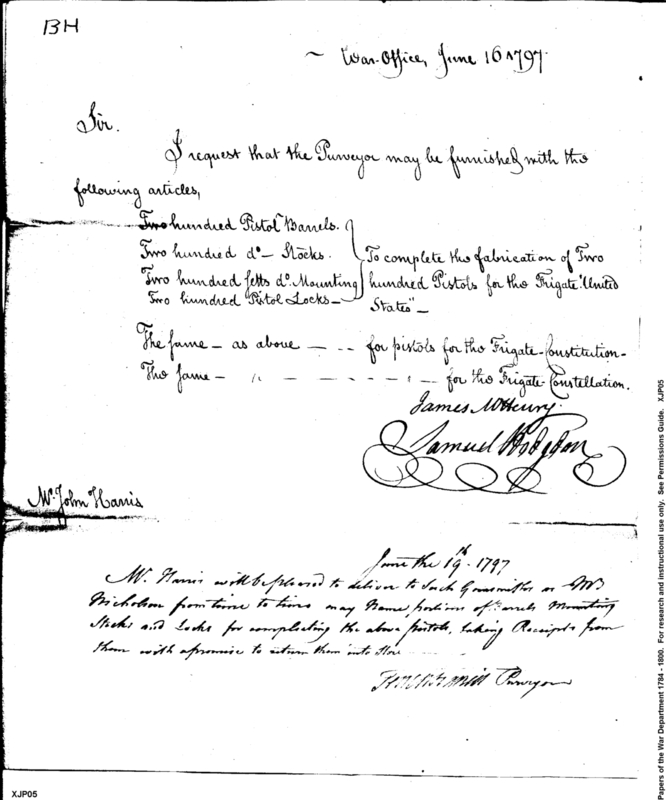 BH
~ War-Office, June 16 1797.
Sir.
I request that the Purveyor may be furnished with the
following articles,
Two hundred Pistol Barrels.
Two hundred do - Stocks.
Two hundred setts do. Mounting
Two hundred Pistol Locks -
To complete the fabrication of Two
hundred Pistols for the Frigate "United
States" -
The same - as above - - - for pistols for the Frigate-Constitution -
The same - " - - - - - " - for the Frigate-Constellation.
James McHenry.
Samuel Hodgdon
Mr. John Harris
June the 19th - 1797
Mr. Harris will be pleased to deliver to such Gunsmiths as Mr
Nicholson from time to time may Name portions of Barrels Mounting
Stocks and Locks for compleating the above pistols, taking Receipts from
them with a promise to return them into Store
Purveyor
XJP05
Papers of the War Department 1784 - 1800. For research and instructional use only. See Permissions Guide. XJP05